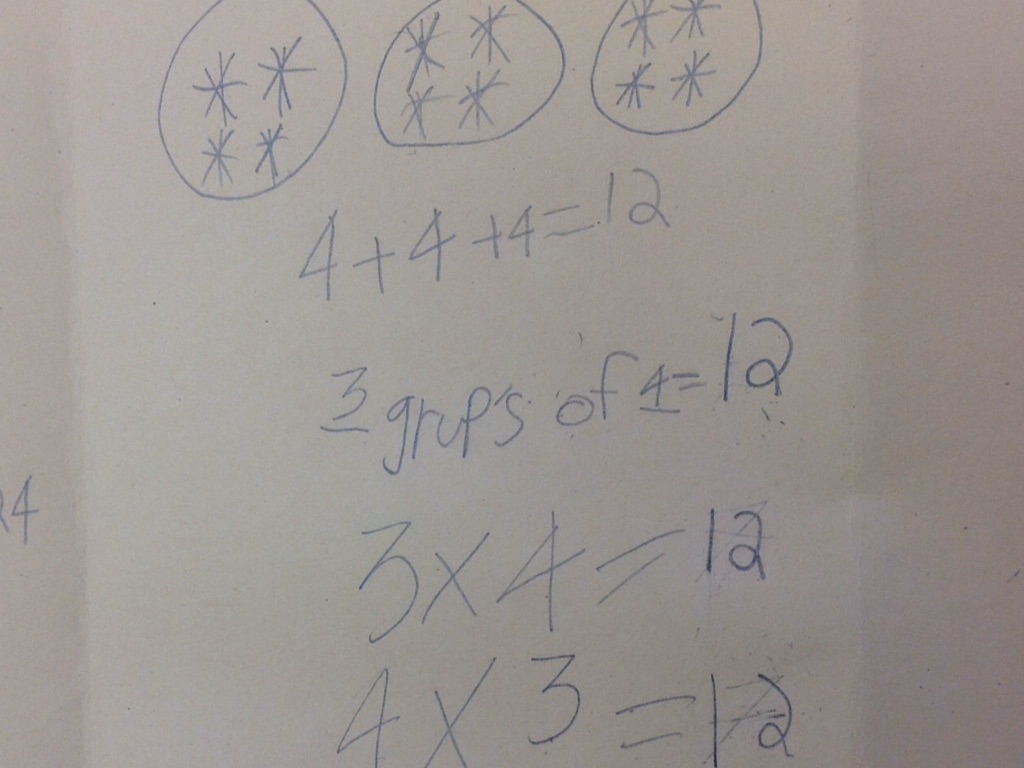 4+4+4=12
3 grup's of 4=12
24
3x4=12
4x3=12